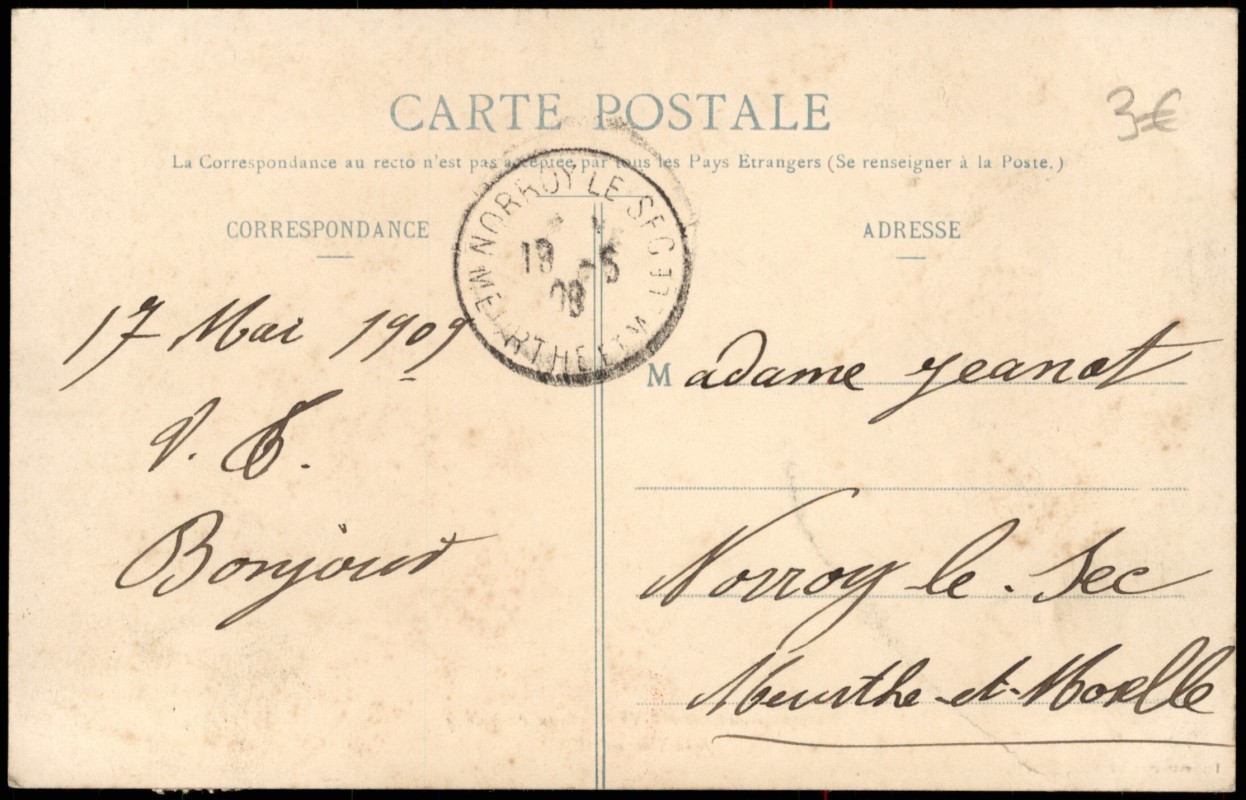 CARTE POSTALE
3 €
La Correspondance au recto n'est pas acceptée par tous les Pays Etrangers (Se renseigner à la Poste.)
CORRESPONDANCE
ADRESSE
NORROY LE SEC LE
19 -5
09
MEURTHE ET M
17 Mai 1909
Madame Jeanot
V. E.
Bonjour
Norroy le-Sec
Meurthe-et-Moselle